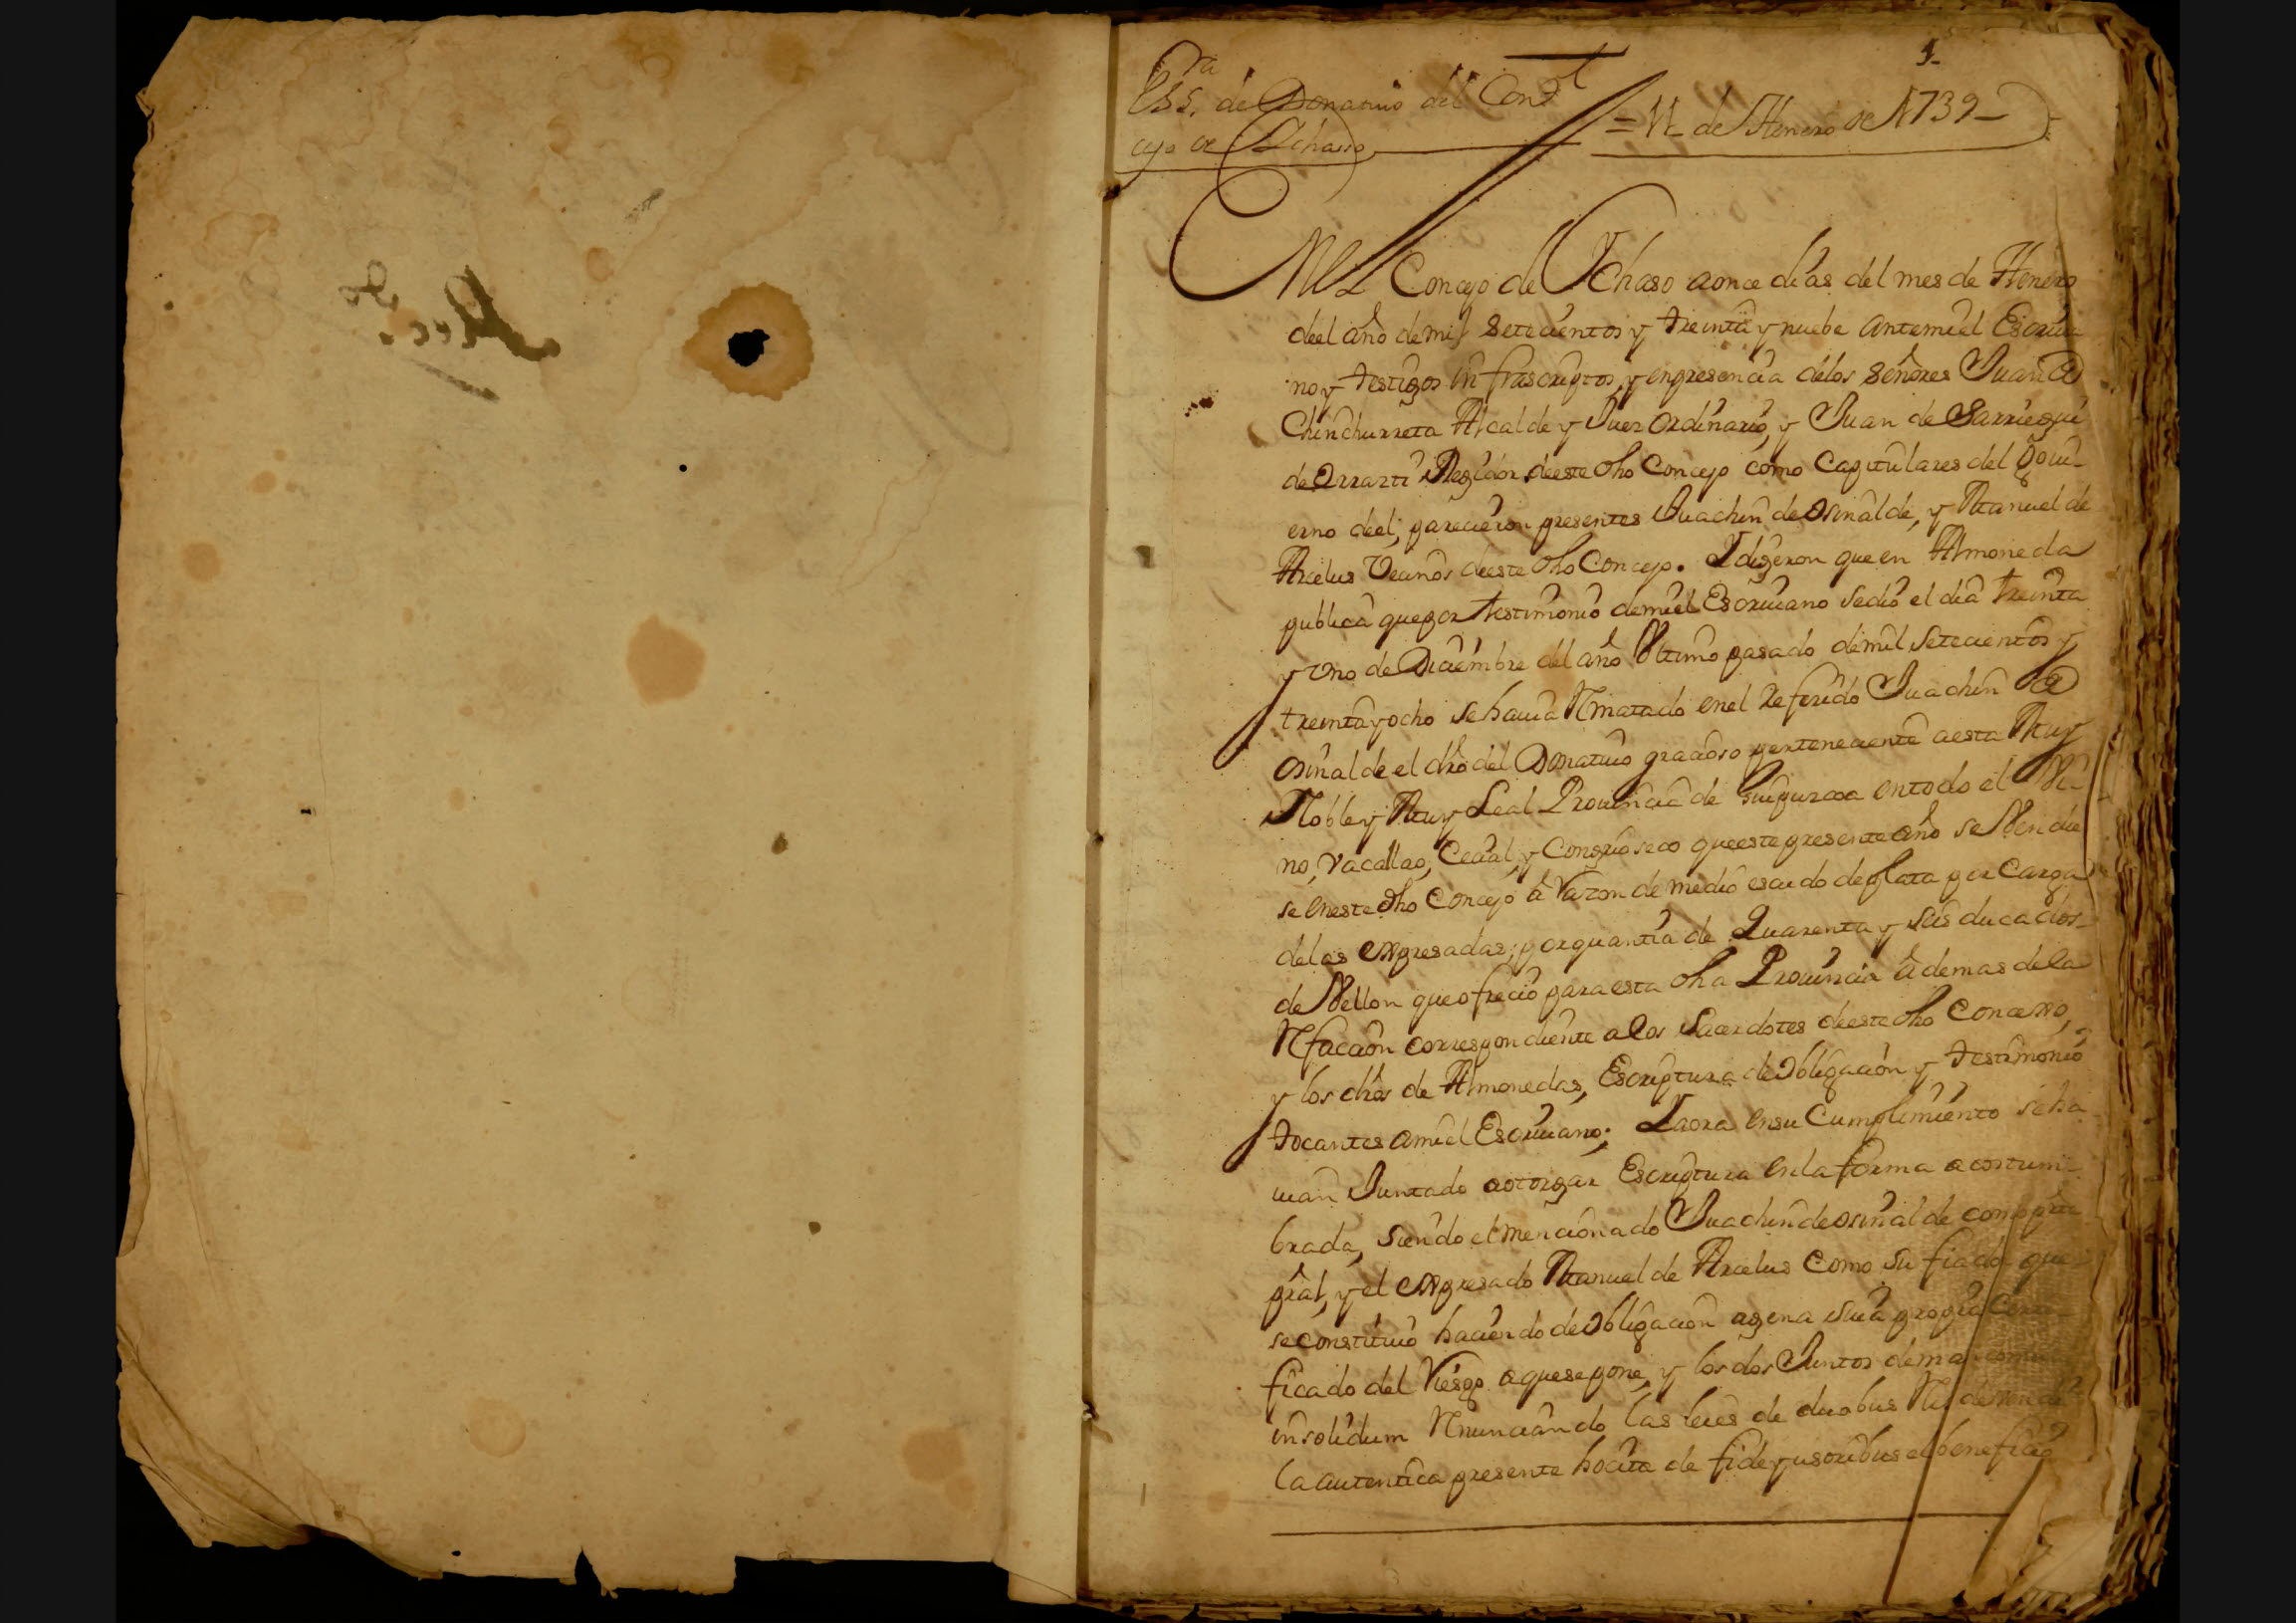 1
Ess.ra de Donatiuo del Con=
cejo de Ichaso
= 11 de Henero de 1739
En el Concejo de Ychaso a once dias del mes de Henero
deel año de mil setecientos y treinta y nuebe ante mi el Escriua
no y testigos infrascriptos, y en presencia de los señores Juan de
Chinchurreta Alcalde y Juez ordinario, y Juan de Sarriegui
de Orrarti Regidor de este dho Concejo como Capitulares del Goui=
erno de el; parecieron presentes Juachin de Osinalde, y Manuel de
Arcelus Vecinos de este dho Concejo. Y dixeron que en Almoneda
publica que por testimonio de mi el Escriuano se dio el dia treinta
y uno de Diciembre del año Vltimo pasado de mil setecientos y
treinta y ocho se hauia Rmatado en el Referido Juachin de
Osinalde el dho del Donatiuo gracioso perteneciente a esta Muy
Noble y Muy Leal Prouincia de Guipuzcoa en todo el Vi=
no, Vacallao, Cecial, y Congrio seco que este presente año se Vendie
se en este dho Concejo â Razon de medio escudo de plata por Carga
de las expresadas; por quantia de Quarenta y seis ducados
de Vellon que ofrecio para esta dha Prouincia â demas de la
Rfaccion correspondiente a los Sacerdotes de este dho Concexo,
y los dhos de Almonedas, Escriptura de Obligacion y testimonio
tocantes a mi el Escriuano; Y aora en su Cumplimiento se ha
uian Juntado a otorgar Escriptura en la forma acostum=
brada, siendo el mencionado Juachin de Osinalde como prin
pral, y el expresado Manuel de Arcelus como su fiador que
se constituio haciendo de Obligacion agena suia propia Certi
ficado del Riesgo a que se pone, y los dos Juntos de mancomun
insolidum Rnunciando las leies de duobus Rex devendi
la autentica presente hocita de fideyusoribus el beneficio